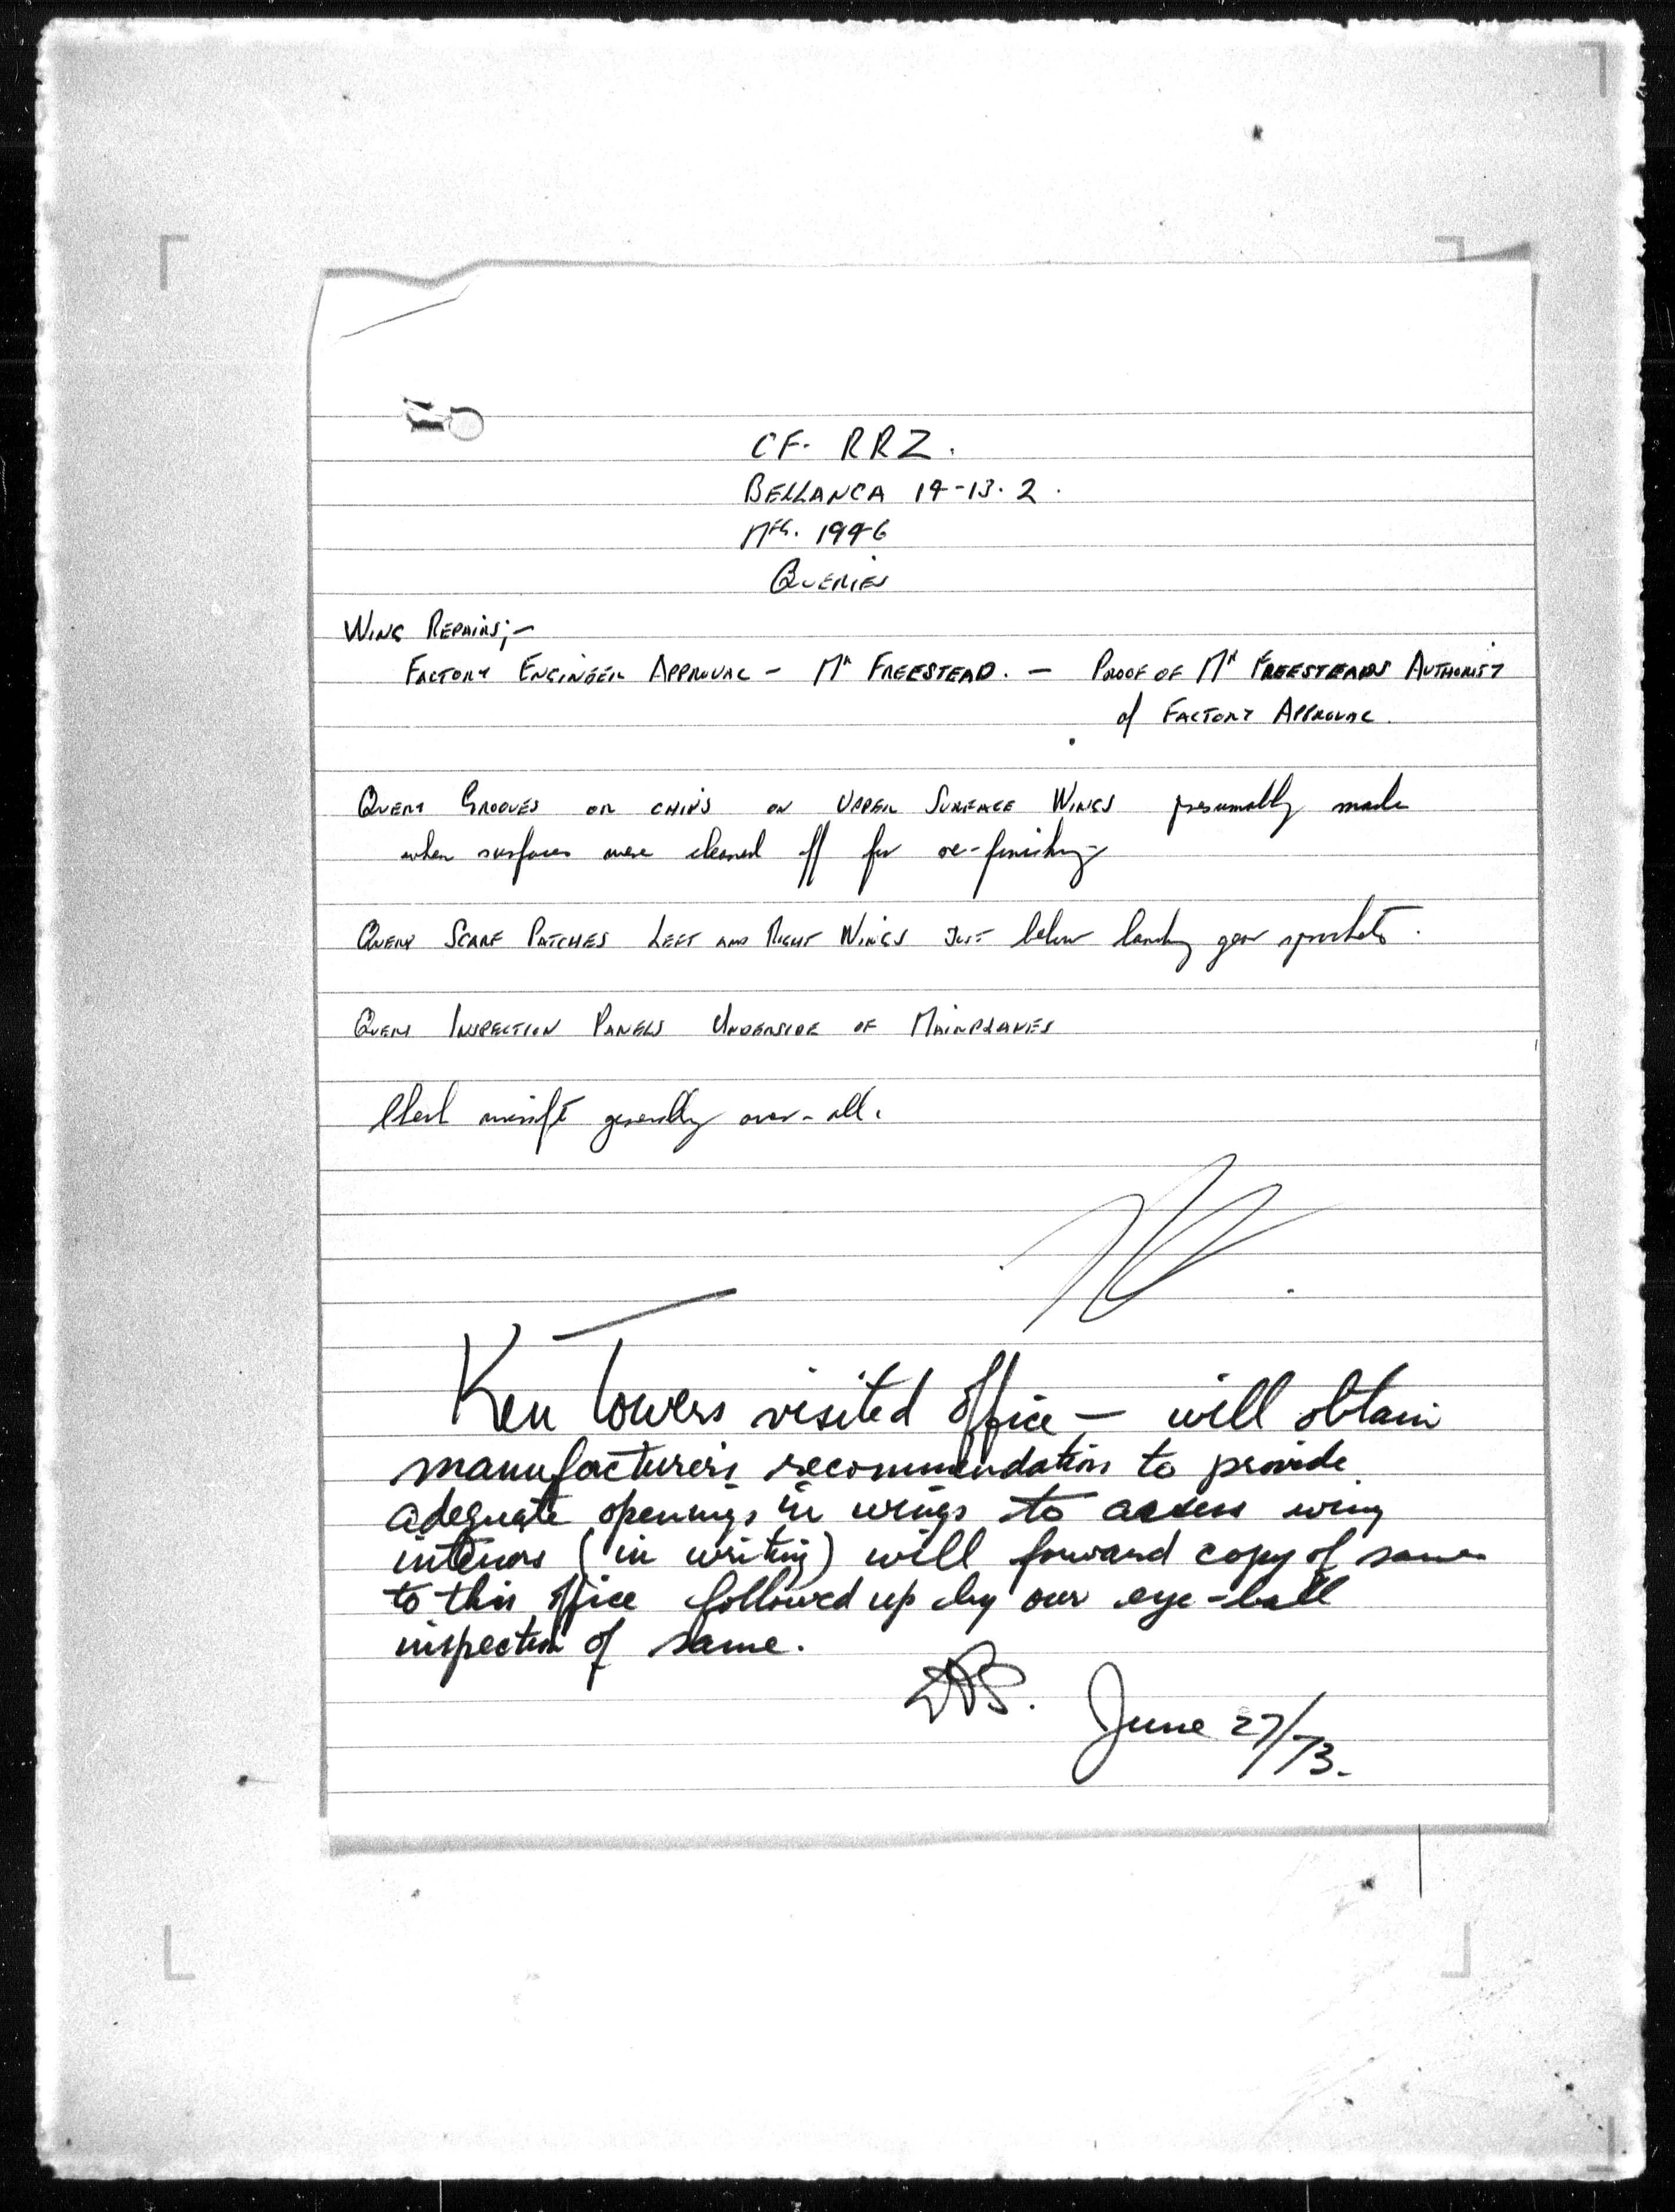 CF-RRZ.
BELLANCA 14-13-2.
MFG. 1946
QUERIES
WING REPAIRS;-
FACTORY ENGINEER APPROVAL - MR FREESTEAD. - PROOF OF MR FREESTEADS AUTHORITY
of FACTORY APPROVAL.
QUERY GROOVES OR CHIPS ON UPPER SURFACE WINGS presumably made
when surfaces were cleaned off for re-finishing
QUERY SCARF PATCHES LEFT AND RIGHT WINGS JUST below landing gear sprockets.
QUERY INSPECTION PANELS UNDERSIDE OF MAINPLANES
Check aircraft generally over-all.
Ken Towers visited office - will obtain
manufacturers recommendation to provide
adequate openings in wings to access wing
interiors (in writing) will forward copy of same
to this office followed up by our eye-ball
inspection of same.
June 27/73.